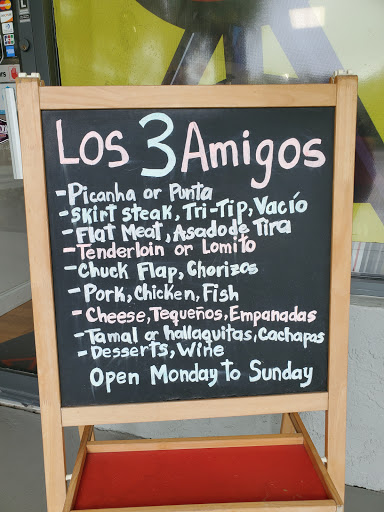 Los 3 Amigos
-Picanha or Punta
-Skirt steak, Tri-Tip, Vacío
-Flat Meat, Asado de Tira
-Tenderloin or Lomito
-Chuck Flap, Chorizos
-Pork, Chicken, Fish
-Cheese, Tequeños, Empanadas
-Tamal or hallaquitas, Cachapas
-Desserts, Wine
Open Monday to Sunday